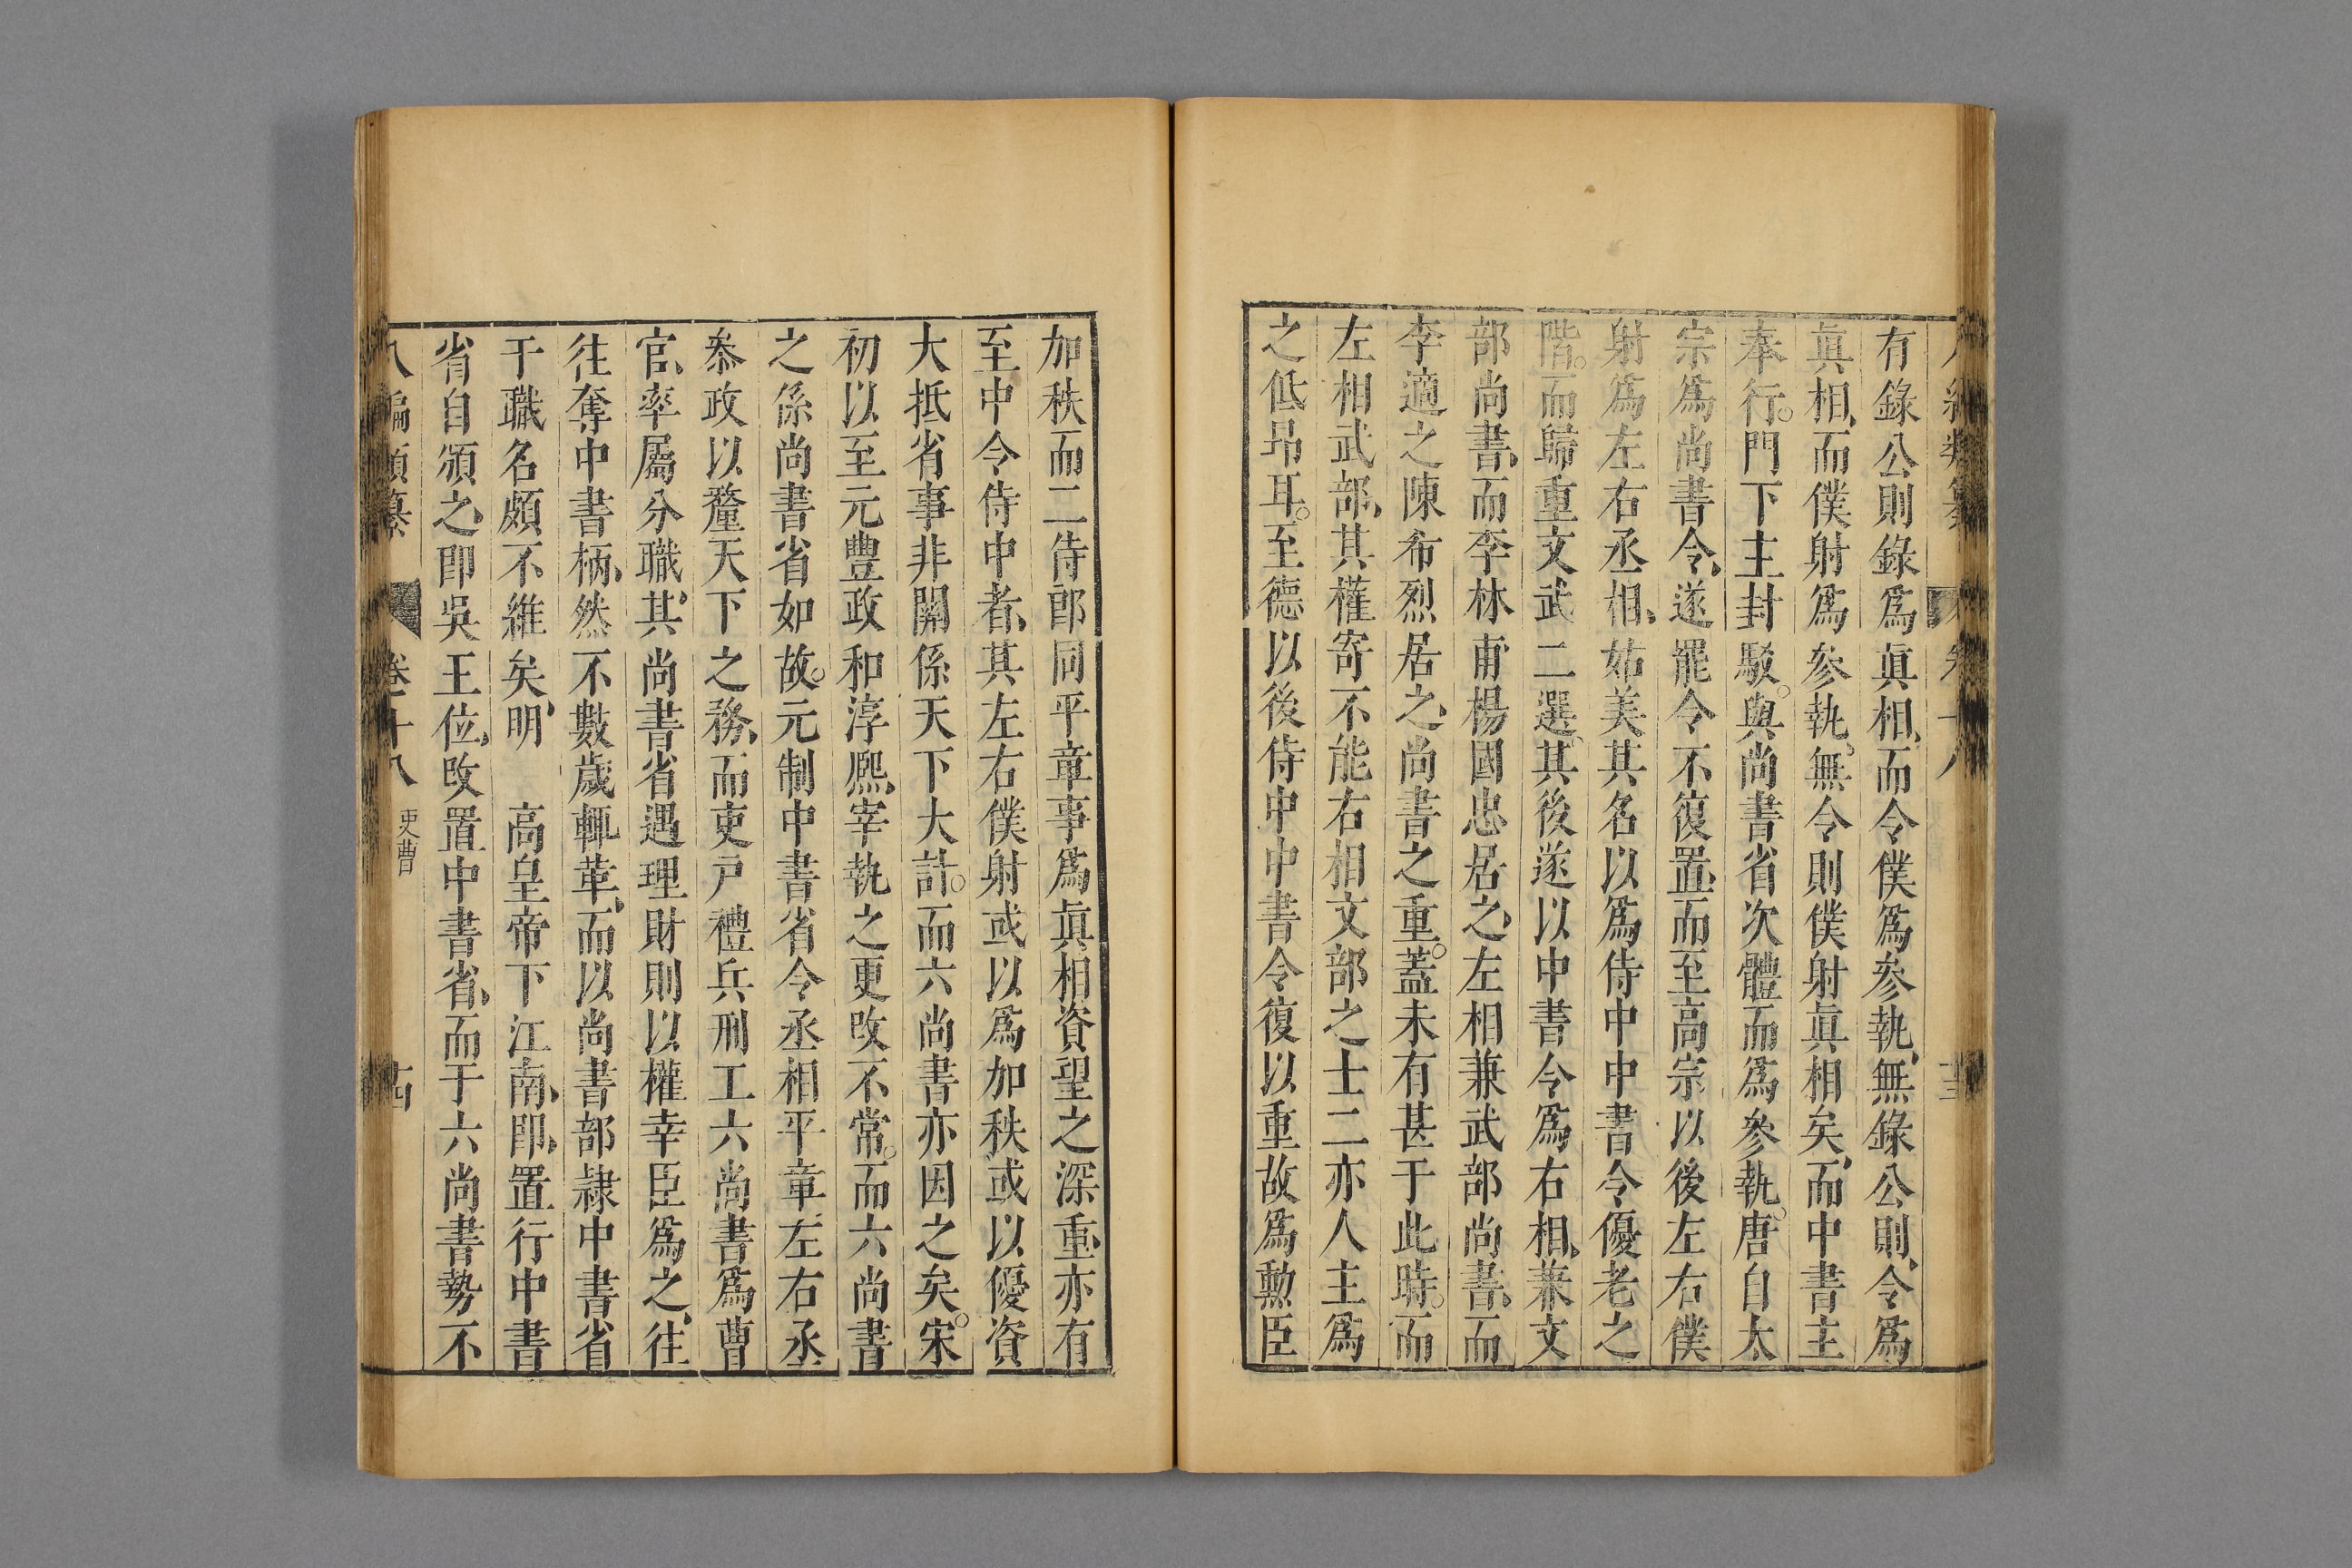 有錄公則錄爲眞相而令僕爲參執無錄公則令爲
眞相而僕射爲參執無令則僕射眞相矣而中書主
奉行門下主封駁與尚書省次體而爲參執唐自太
宗爲尚書令遂罷令不復置而至高宗以後左右僕
射爲左右丞相姑美其名以爲侍中中書令優老之
階而歸重文武二選其後遂以中書令爲右相兼文
部尚書而李林甫楊國忠居之左相兼武部尚書而
李適之陳希烈居之尚書之重蓋未有甚于此時而
左相武部其權寄不能右相文部之士二亦人主爲
之低昂耳至德以後侍中中書令復以重故爲勲臣
加秩而二侍郎同平章事爲眞相資望之深重亦有
至中令侍中者其左右僕射或以爲加秩或以優資
大抵省事非關係天下大計而六尚書亦因之矣宋
初以至元豐政和淳熈宰執之更攺不常而六尚書
之係尚書省如故元制中書省令丞相平章左右丞
叅政以釐天下之務而吏戸禮兵刑工六尚書爲曹
官率屬分職其尚書省遇理財則以權幸臣爲之往
往奪中書柄然不數歲輒革而以尚書部隷中書省
于職名頗不維矣明 高皇帝下江南卽置行中書
省自頒之卽吳王位攺置中書省而于六尚書勢不
八編類纂 卷十八 吏曹 十四